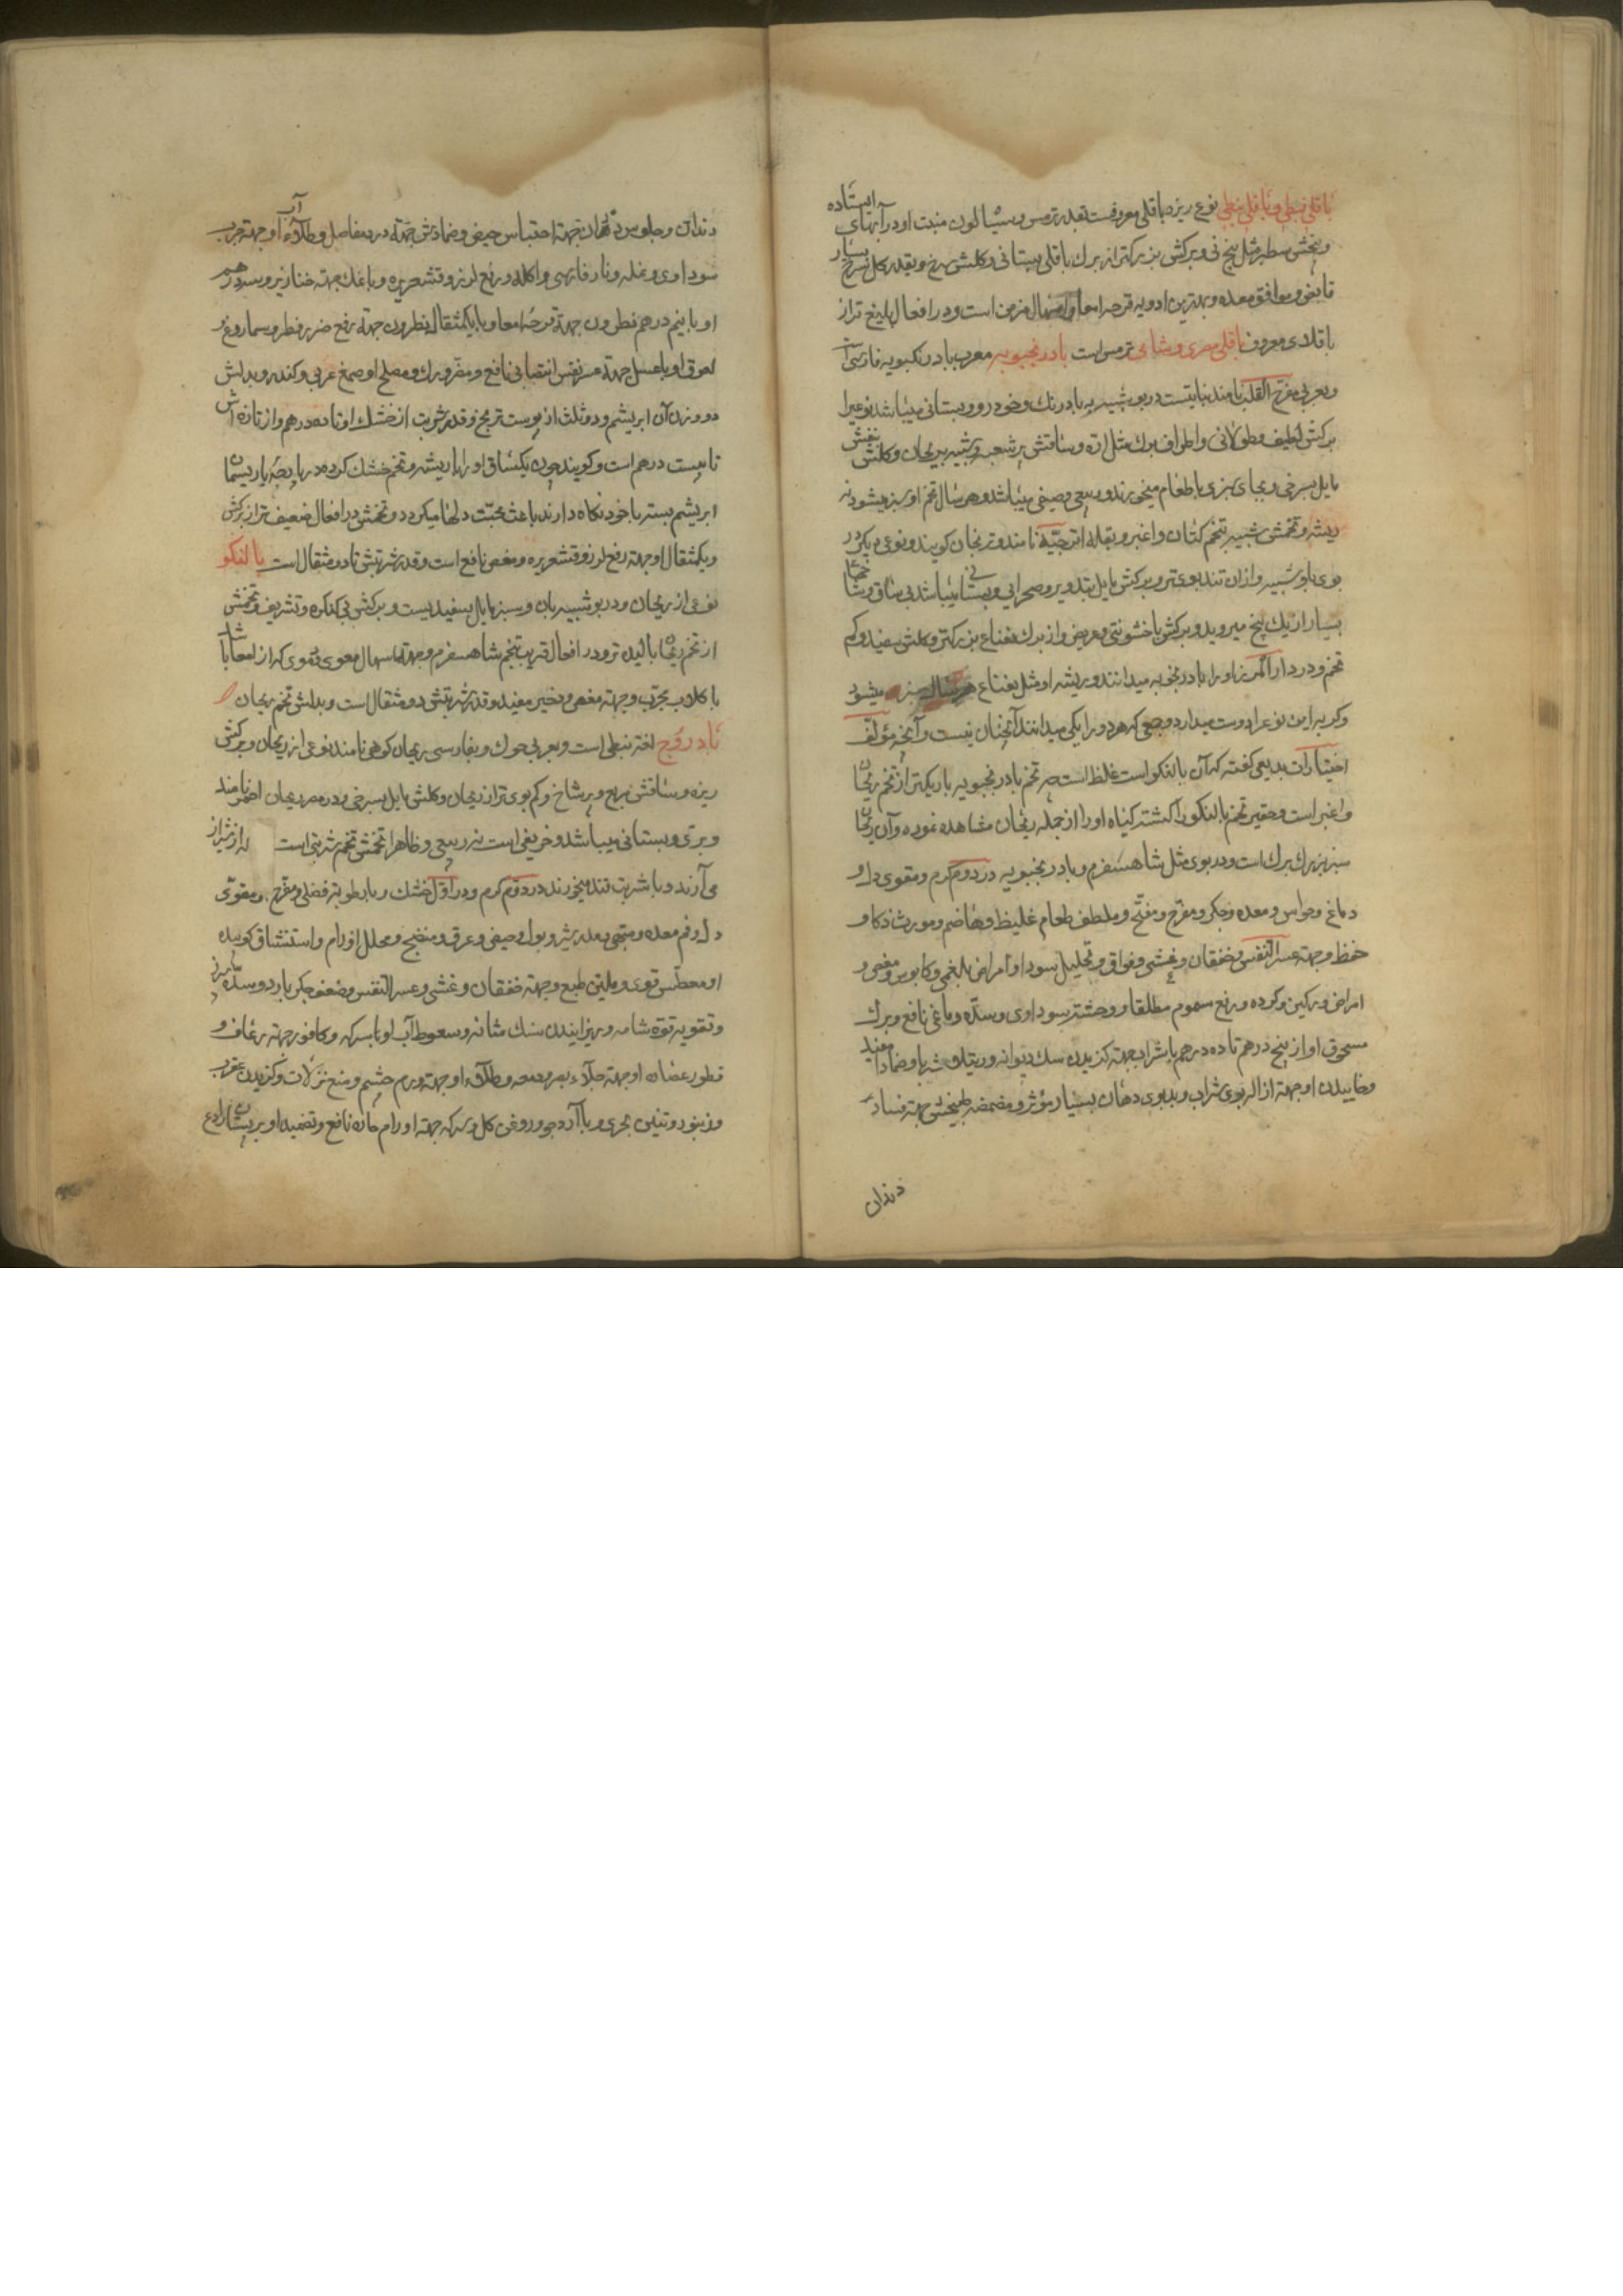 باقلی نبطی و باقلی قبطی نوع ریزه باقلی معروفست بقدر ترمس و سیاه لون منبت او در آبهای ایستاده
و بیخش سطبر مثل بیخ نی و برکش بزرکتر از برك باقلی بستانی و کلش سرخ و بقدر کل سرخ بسیار
قابض و موافق معده و بهترین ادویه قرحه امعا و اسهال مزمن است و در افعال بلیغ تر از
باقلای معروف باقلی مصری و شامی ترمس است بادرنجبویه معرب بادرنکبویه فارسی است
و بعربی مفرح القلب نامند نباتیست در بو شبیه به بادرنك و خودرو و بستانی میباشد نوعیرا
برکش لطیف و طولانی و اطراف برك مثل اره و ساقش پر شعبه و شبیه بریحان و کلش بنفش
مایل بسرخی و بجای سبزی با طعام میخورند و ربیعی و صیفی میباشد و هر سال تخم او سبز میشود نه
ریشه و تخمش شبیه بتخم کتان و اغبر و بقله اترجیه نامند و ترنجان کویند و نوعی دیکر در
بوی باو شبیه و ازان تند بوی تر و برکش مایل بتدویر و صحرایی و بستانی میباشد بی ساق و شاخها
بسیار از یك بیخ میروید و برکش با خشونتی و عریض و از برك نعناع بزرکتر و کلش سفید و کم
تخم و در دار المرز او را بادرنجبویه میدانند و ریشه او مثل نعناع هر سال سبز میشود
و کربه این نوع را دوست میدارد و جمعی که هر دو را یکی میدانند آنچنان نیست و آنچه مؤلف
اختیارات بدیعی کفته که آن بالنکو است غلط است چه تخم بادرنجبویه باریکتر از تخم ریحان
و اغبر است و حقیر تخم بالنکو را کشته کیاه او را از جمله ریحان مشاهده نموده و آن ریحان
سبز بزرك برك است و در بوی مثل شاهسفرم و بادرنجبویه در دوم کرم و مقوی دل و
دماغ و حواس و معده و جکر و مفرح و مفتح و ملطف طعام غلیظ و هاضم و مورث ذکا و
حفظ و جهته عسر النفس و خفقان و غشی و فواق و تحلیل سودا و امراض بلغمی و کابوس و مغص و
امراض ورکین و کرده و رفع سموم مطلقا و وحشت سوداوی و سده دماغی نافع و برك
مسحوق او از پنج درهم تا ده درهم با شراب جهته کزیدن سك دیوانه و رتیلا شربا و ضمادا مفید
و خاییدن او جهته ازاله بوی شراب و بدبوی دهان بسیار مؤثر و مضمضه طبیخش جهته فساد
دندان
دندان و جلوس در آن جهته احتباس حیض و ضمادش جهته درد مفاصل و طلاء آب او جهته جرب
سوداوی و نمله و نار فارسی و آکله و رفع لرز و قشعریره و با نمك جهته خنازیر و سه درهم
او با نیم درهم نطرون جهته قرحه امعا و با یکمثقال نطرون جهته رفع ضرر فطر و سماروغ و
لعوق او با عسل جهته عسر نفس انتصابی نافع و مضر ورك و مصلح او صمغ عربی و کندر و بدلش
دو وزن آن ابریشم و دو ثلث از پوست ترنج و قدر شربت از خشك او تا ده درهم و از تازه اش
تا بیست درهم است و کویند چون یکساق او را با ریشه و تخم خشك کرده در پارچه با ریسمان
ابریشم بسته با خود نکاه دارند باعث محبت دلها میکردد و تخمش در افعال ضعیف تر از برکش
و یکمثقال او جهته رفع لرز و قشعریره و مغص نافع است و قدر شربتش تا دو مثقال است بالنکو
نوعی از ریحان و در بو شبیه بان و سبز مایل بسفیدیست و برکش بی کنکره و تشریف و تخمش
از تخم ریحان بالیده تر و در افعال قریب بتخم شاهسفرم و جهته اسهال معوی دموی که از امعا باشد
با کلاب مجرب و جهته مغص و زحیر مفید و قدر شربتش دو مثقال است و بدلش تخم ریحان
بادروج لغة نبطی است و بعربی حوك و بفارسی ریحان کوهی نامند نوعی از ریحان و برکش
ریزه و ساقش مربع و پر شاخ و کم بوی تر از ریحان و کلش مایل بسرخی و در مصر ریحان احمر نامند
و بری و بستانی میباشد و خریفی است نه ربیعی و ظاهرا تخمش تخم شربتی است که از شیراز
می آرند و با شربت قند میخورند در دوم کرم و در اول خشك و با رطوبة فضلی و مفرح و مقوی
دل و فم معده و مشهی و مدر شیر و بول و حیض و عرق و منضج و محلل اورام و استنشاق کوبیده
او معطس قوی و ملین طبع و جهته خفقان و غشی و عسر النفس و ضعف جکر بارد و سده سپرز
و تقویه قوة شامه و ریزانیدن سنك مثانه و سعوط آب او با سرکه و کافور جهته رعاف و
قطور عصاره او جهته جلاء بصر و دمعه و طلاء او جهته ورم چشم و منع نزلات و کزیدن عقرب
و زنبور و تنین بحری و با آرد جو و روغن کل و سرکه جهته اورام حاره نافع و تضمید او بر پستان رادع